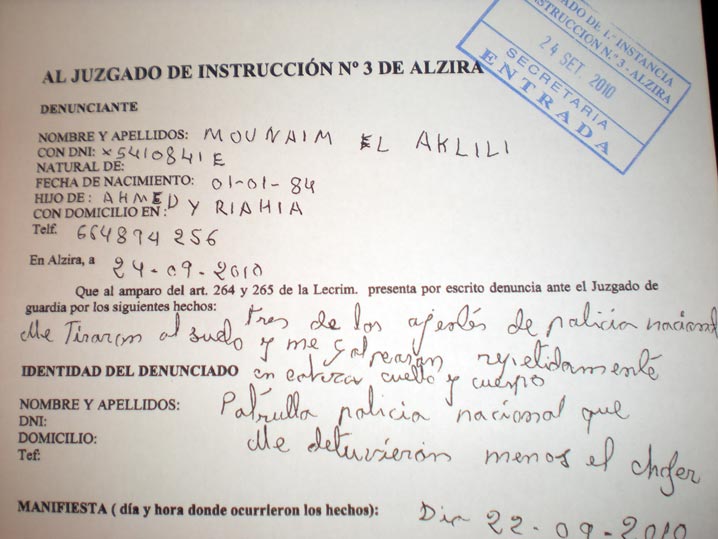 ADO DE 1.ª INSTANCIA
INSTRUCCION N.º 3 - ALZIRA
24 SET. 2010
SECRETARIA
ENTRADA
AL JUZGADO DE INSTRUCCIÓN Nº 3 DE ALZIRA
DENUNCIANTE
NOMBRE Y APELLIDOS: MOUNAIM EL AKLILI
CON DNI: X5410841E
NATURAL DE:
FECHA DE NACIMIENTO: 01-01-84
HIJO DE: AHMED Y RIAHIA
CON DOMICILIO EN:
Telf. 664894256
En Alzira, a 24-09-2010
Que al amparo del art. 264 y 265 de la Lecrim. presenta por escrito denuncia ante el Juzgado de
guardia por los siguientes hechos:
tres de los ajentes de policia nacional
Me Tiraron al suelo y me golpearan repetidamente
en cabeza cuello y cuerpo
IDENTIDAD DEL DENUNCIADO
NOMBRE Y APELLIDOS: Patrulla policia nacional que
DNI:
DOMICILIO: Me detuvieron menos el chofer
Tef:
MANIFIESTA ( día y hora donde ocurrieron los hechos): Dia 22-09-2010